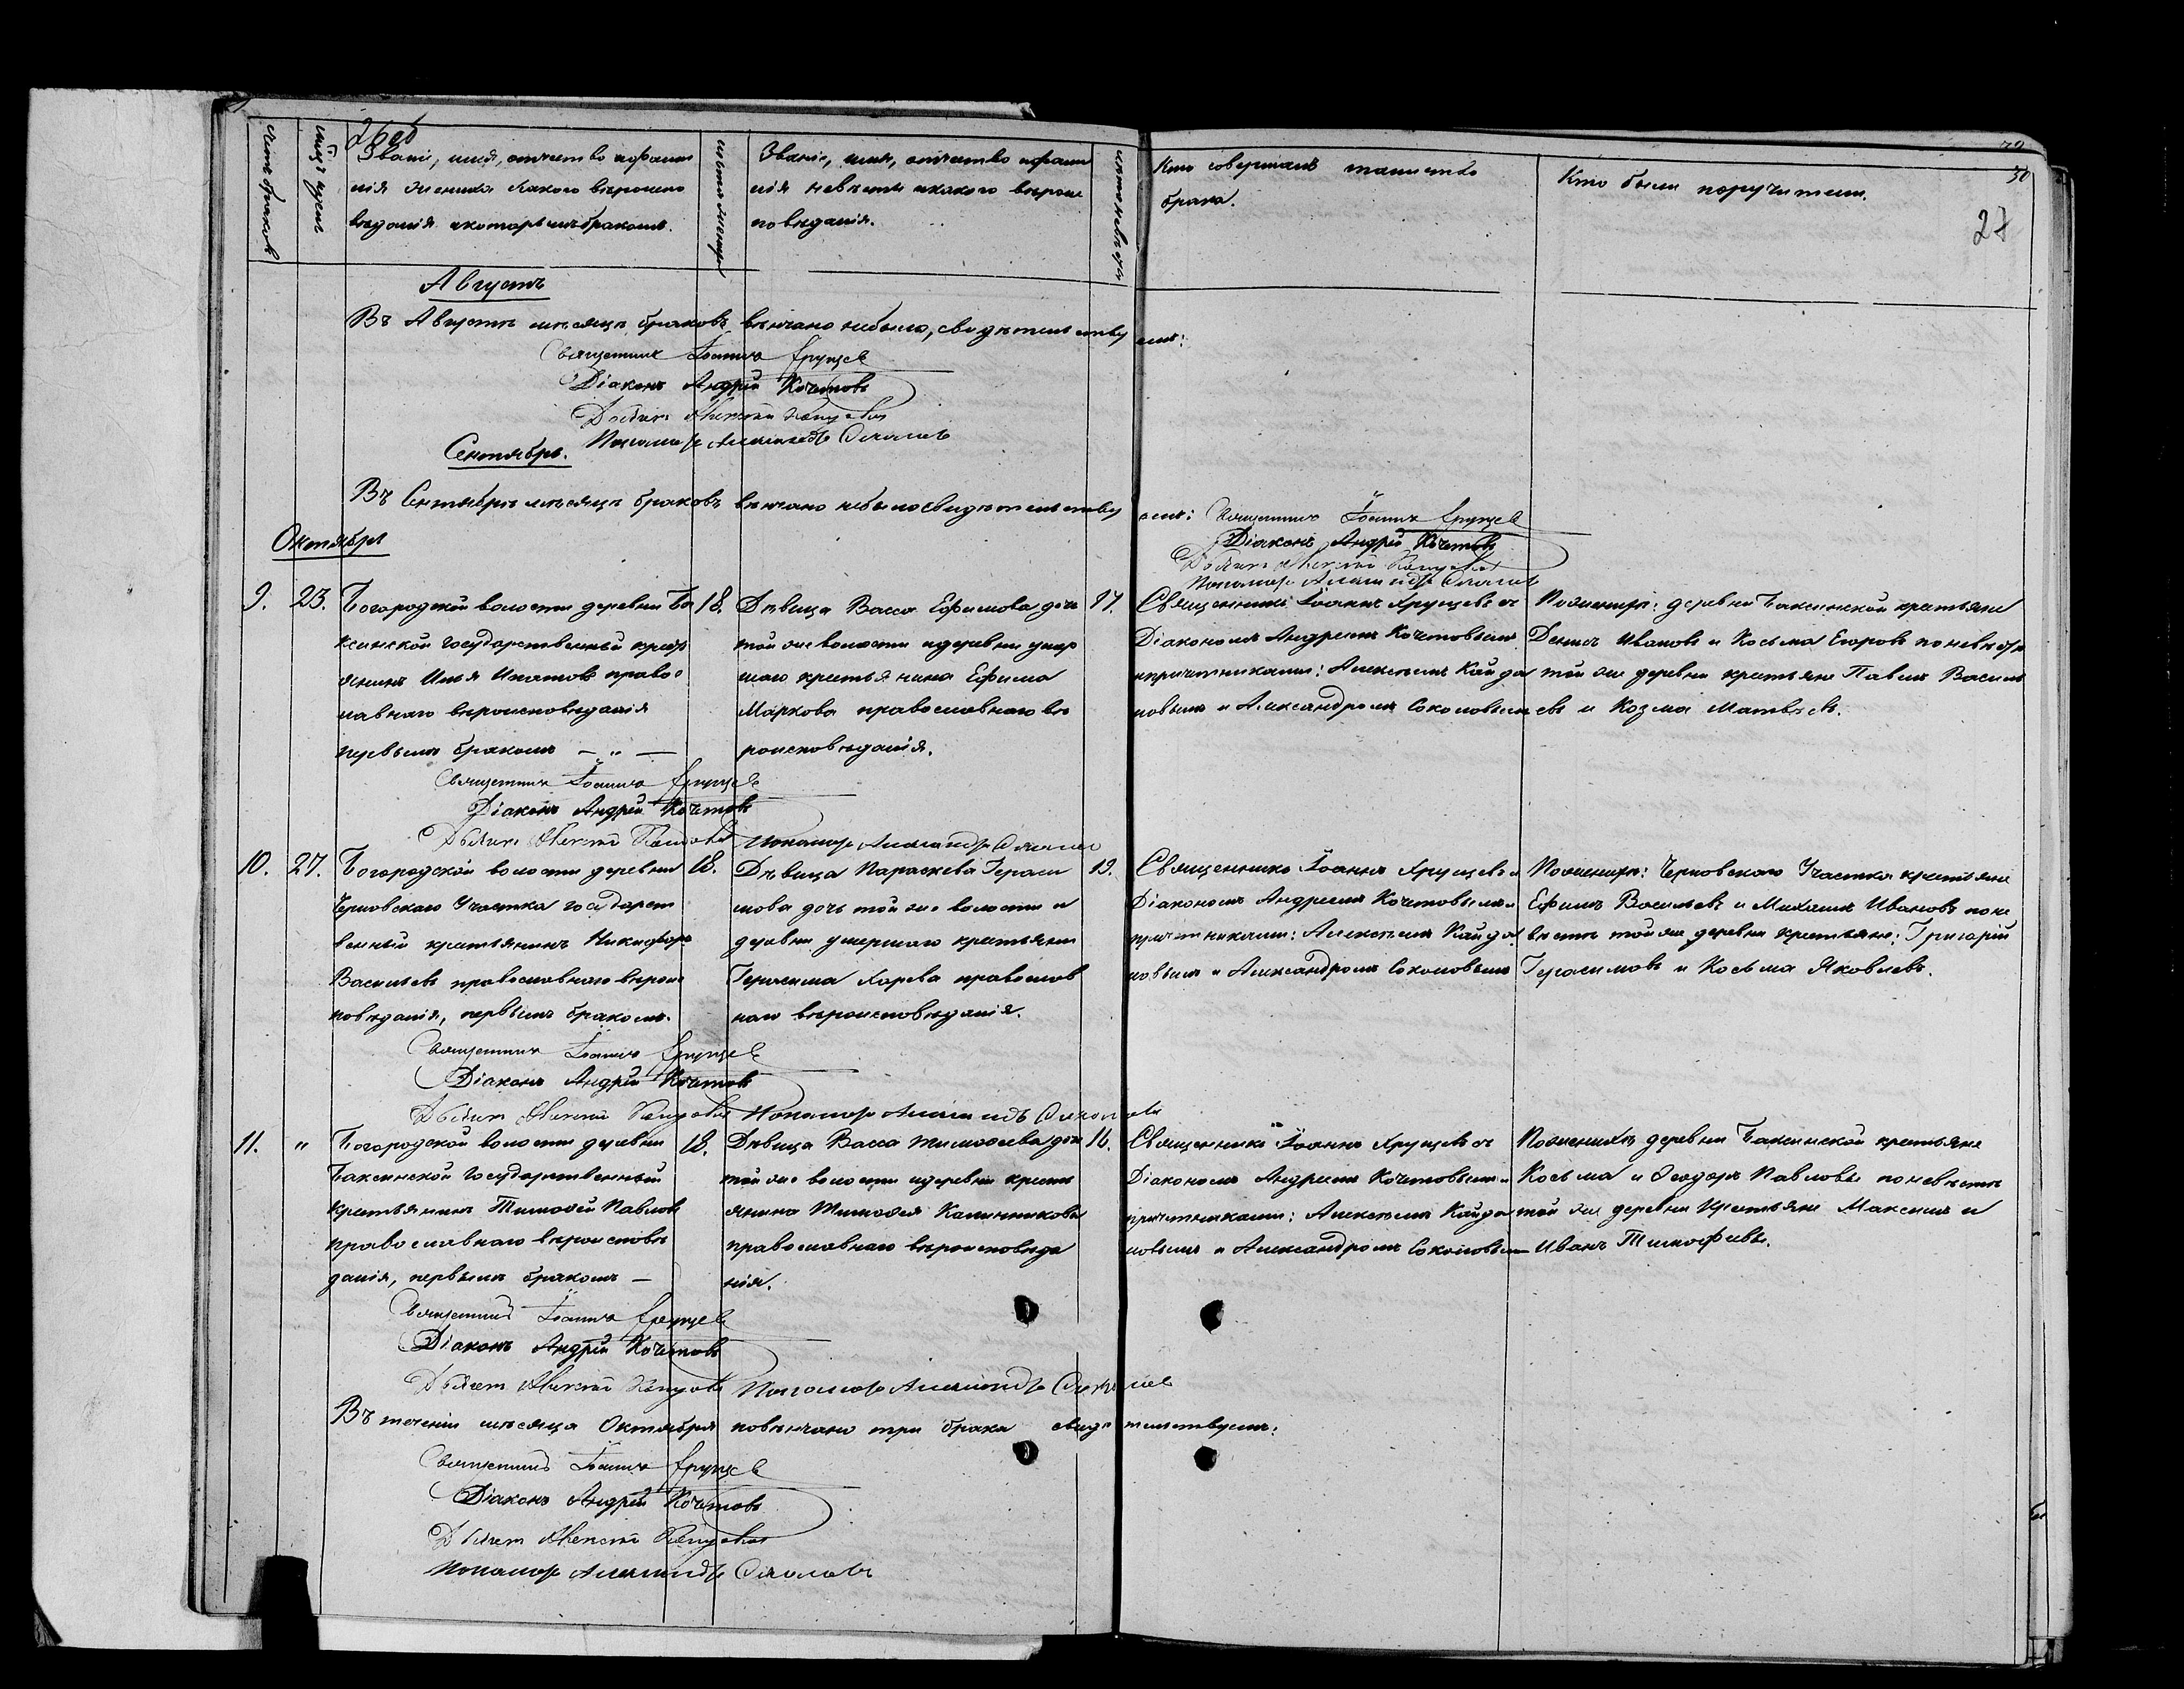 26об
30
27
Счетъ браковъ
мѣсяцъ и день
Званіе, имя, отчество и фами
лія жениха и какого вѣроиспо
вѣданія и которымъ бракомъ.
лѣта жениха
Званіе, имя, отчество и фами
лія невѣсты и какого вѣроис
повѣданія.
лѣта невѣсты
Кто совершалъ таинство
брака.
Кто были поручители.
Августъ
Въ Августѣ мѣсяцѣ браковъ вѣнчано небыло, свидѣтельству емъ:
Священникъ Іоаннъ Хрущевъ
Діаконъ Андрей Кочетовъ
Дьячекъ Алексѣй
Пономарь Александръ Соколовъ
Сентябрь.
Въ Сентябрѣ мѣсяцѣ браковъ вѣнчано небыло свидѣтельству емъ: Священникъ Іоаннъ Хрущевъ
Діаконъ Андрей Кочетовъ
Дьячекъ Алексѣй
Пономарь Александръ Соколовъ
Октябрь
9. 23. Богородской волости деревни Ба
ксинской государственный кресть
янинъ Илья Игнатовъ правос
лавнаго вѣроисповѣданія
первымъ бракомъ — " —
18.
Дѣвица Васса Ефимова дочь
той же волости и деревни умер
шаго крестьянина Ефима
Маркова православнаго вѣ
роисповѣданія.
17.
Священникъ Іоаннъ Хрущевъ съ
Діакономъ Андреемъ Кочетовымъ
и причетниками: Алексѣемъ Кайда
новымъ и Александромъ Соколовымъ
По женихѣ: деревни Баксинской крестьяне
Денисъ Ивановъ и Косьма Егоровъ по невѣстѣ
той же деревни крестьяне Павелъ Василь
евъ и Козма Матвѣевъ.
Священникъ Іоаннъ Хрущевъ
Діаконъ Андрей Кочетовъ
Дьячекъ Алексѣй Кайдановъ Пономарь Александръ Соколовъ
10. 27. Богородской волости деревни
Черновскаго Участка государст
венный крестьянинъ Никифоръ
Васильевъ православнаго вѣроис
повѣданія, первымъ бракомъ.
18.
Дѣвица Параскева Гераси
мова дочь той же волости и
деревни умершаго крестьянина
Герасима Карева православ
наго вѣроисповѣданія.
19.
Священникъ Іоаннъ Хрущевъ съ
Діакономъ Андреемъ Кочетовымъ и
причетниками: Алексѣемъ Кайда
новымъ и Александромъ Соколовымъ
По женихѣ: Черновскаго Участка крестьяне
Ефимъ Васильевъ и Михаилъ Ивановъ по не
вѣстѣ той же деревни крестьяне: Григорій
Герасимовъ и Косьма Яковлевъ.
Священникъ Іоаннъ Хрущевъ
Діаконъ Андрей Кочетовъ
Дьячекъ Алексѣй Кайдановъ Пономарь Александръ Соколовъ
11. " Богородской волости деревни
Баксинской Государственный
крестьянинъ Тимофей Павловъ
православнаго вѣроисповѣ
данія, первымъ бракомъ —
18.
Дѣвица Васса Тимофеева дочь
той же волости и деревни кресть
янина Тимофея Калинникова
православнаго вѣроисповѣда
нія.
16.
Священникъ Іоаннъ Хрущевъ съ
Діакономъ Андреемъ Кочетовымъ и
причетниками: Алексѣемъ Кайда
новымъ и Александромъ Соколовымъ
По женихѣ деревни Баксинской крестьяне
Косьма и Ѳеодоръ Павловы по невѣстѣ
той же деревни крестьяне Максимъ и
Иванъ Тимофѣевы.
Священникъ Іоаннъ Хрущевъ
Діаконъ Андрей Кочетовъ
Дьячекъ Алексѣй Кайдановъ Пономарь Александръ Соколовъ
Въ теченіи мѣсяца Октября повѣнчано три брака свидѣтельствуемъ:
Священникъ Іоаннъ Хрущевъ
Діаконъ Андрей Кочетовъ
Дьячекъ Алексѣй Кайдановъ
Пономарь Александръ Соколовъ